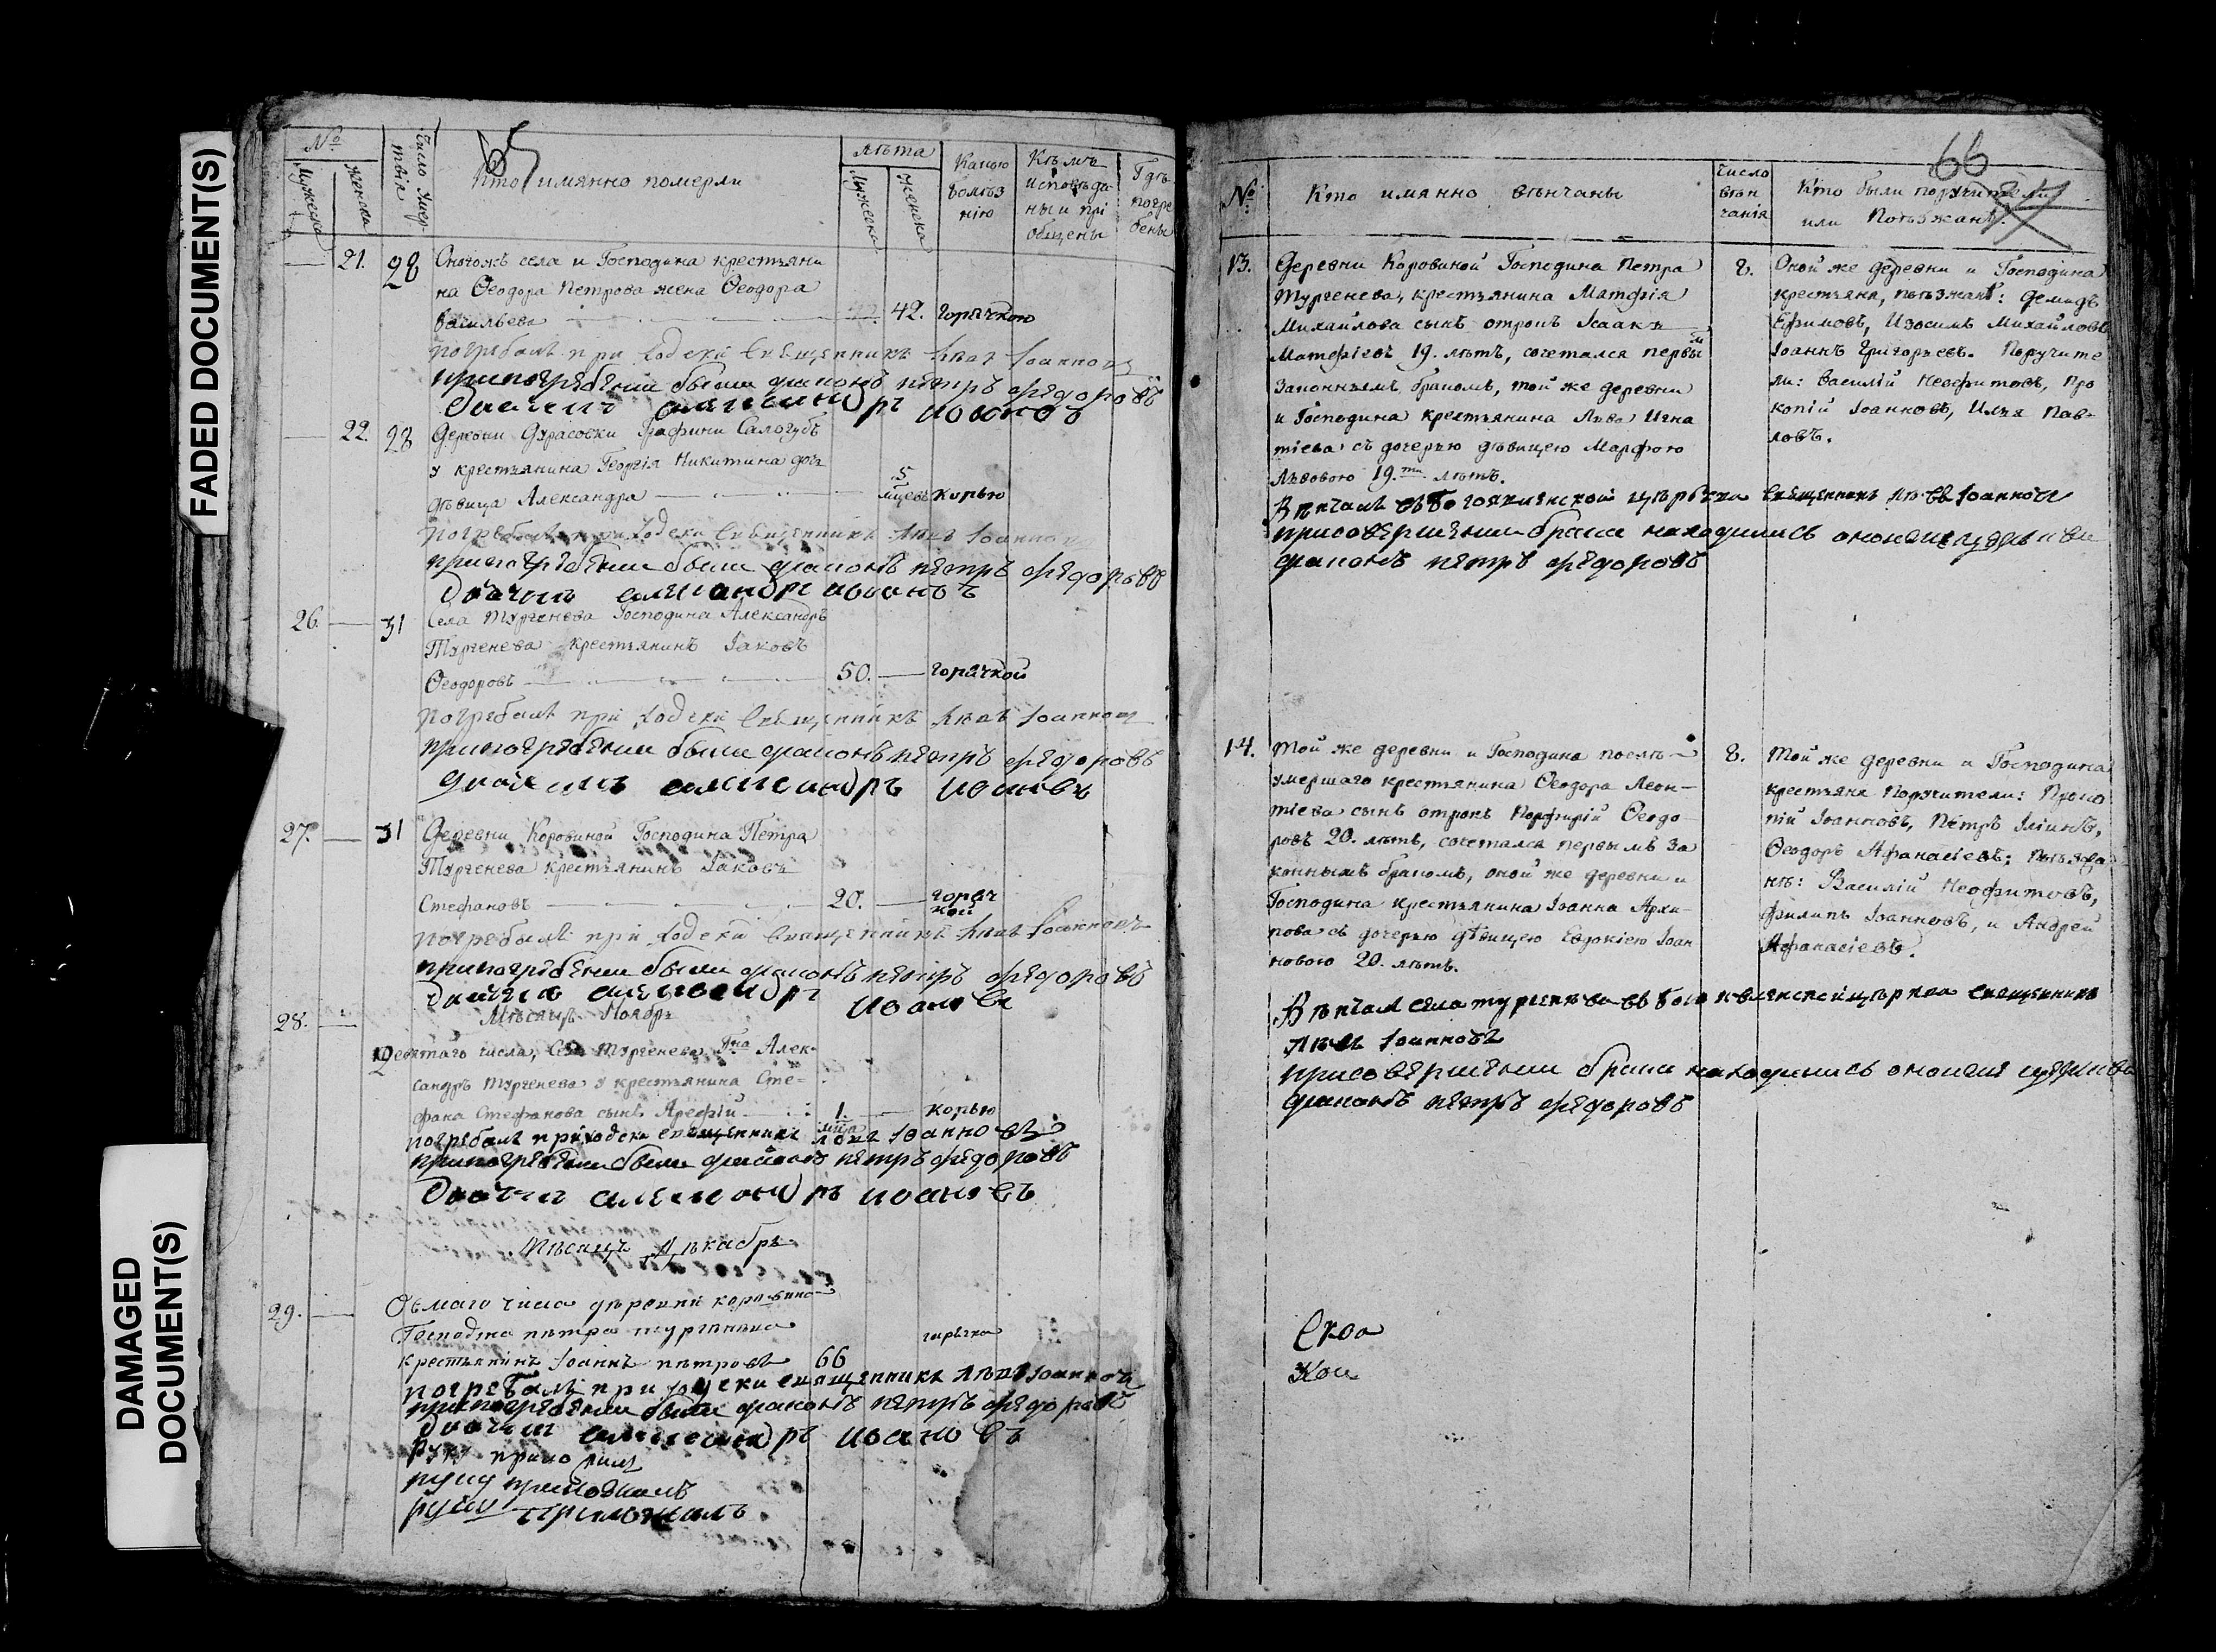 FADED DOCUMENT(S)
DAMAGED
DOCUMENT(S)
65
№
Мужеска
Женска
Число Умер-
твія
Кто имянно померли
лѣта
Мужеска
Женска
Какою
болѣз
нію
Кѣмъ
исповѣда
ны и прі
общены
Гдѣ
погре
бены
21. 28 Оногожъ села и Господина крестьяни
на Ѳеодора Петрова жена Ѳеодора
Васильева 42. горячкою
погребалъ при ходски священникъ Левъ Іоанновъ
припогребении были диаконъ петръ федоровъ
Дьячекъ александръ иоановъ
22. 28 Деревни Дурасовки Графини Салогубъ
у крестьянина Георгія Никитина дочь
5
дѣвица Александра мцевъ корью
погребалъ приходски священникъ Левъ Іоанновъ
припогребении были диаконъ петръ федоровъ
Дьячекъ александръ иоановъ
26. 31 Села Тургенева Господина Александръ
Тургенева крестьянинъ Іаковъ
Ѳеодоровъ 50. горячкой
погребалъ при ходски священникъ Левъ Іоанновъ
припогребении были диаконъ петръ федоровъ
дьячекъ александръ иоановъ
27. 31 Деревни Коровиной Господина Петра
Тургенева крестьянинъ Іаковъ
Стефановъ 20. горяч
кой
погребалъ при ходски священникъ Левъ Іоанновъ
припогребении были диаконъ петръ федоровъ
Дьячекъ александръ иоановъ
Мѣсяцъ Ноябрь
28.
Девятаго числа, Села Тургенева Гна Алек-
сандръ Тургенева у крестьянина Сте-
фана Стефанова сынъ Арефій 1. корью
погребалъ приходски священникъ Левъ Іоанновъ
припогребении были диаконъ петръ федоровъ
Дьячекъ александръ иоановъ
Мѣсяцъ Декабрь
29. Осмаго числа деревни коровино
Господина петра тургенева горячка
крестьянинъ Іоаннъ петровъ 66
погребалъ приходски священникъ Левъ Іоанновъ
припогребении были диаконъ петръ федоровъ
Дьячекъ александръ иоановъ
руку приложилъ
руку приложилъ
руку приложилъ
66
№
Кто имянно вѣнчаны
Число
вѣн
чанія
Кто были поручители
или Поѣзжанѣ
13. Деревни Коровиной Господина Петра
Тургенева, крестьянина Матфія
Михайлова сынъ отрокъ Исаакъ
Матфіевъ 19. лѣтъ, сочетался первы
м
законнымъ бракомъ, той же деревни
и Господина крестьянина Льва Игна
тіева съ дочерью дѣвицею Марфою
Львовою 19.ти лѣтъ.
8. Оной же деревни и Господина
крестьяне, поѣзжанѣ: Демидъ
Ефимовъ, Изосимъ Михайловъ
Іоаннъ Григорьевъ. Поручите
ли: Василій Неофитовъ, Про
копій Іоанновъ, Илья Пав-
ловъ.
Вѣнчалъ въ Богоявленской церькви священникъ Левъ Іоанновъ
присовершении брака находились оноиже церькви
диаконъ петръ федоровъ
14. Той же деревни и Господина послѣ
умершаго крестьянина Ѳеодора Леон-
тіева сынъ отрокъ Порфирій Ѳеодо-
ровъ 20. лѣтъ, сочетался первымъ за
коннымъ бракомъ, оной же деревни и
Господина крестьянина Іоанна Архи-
пова съ дочерью дѣвицею Евдокіею Іоан
новою 20. лѣтъ.
8. Той же деревни и Господина
крестьяне Поручители: Проко
пій Іоанновъ, Петръ Іліинъ,
Ѳеодоръ Афанасіевъ; Поѣзжа
нѣ: Василій Неофитовъ,
Филипъ Іоанновъ, и Андрей
Афанасіевъ.
Вѣнчал села тургенева въ богоявленской церкви священникъ
Левъ Іоанновъ
присовершении брака находились оноиже церькви
диаконъ петръ федоровъ